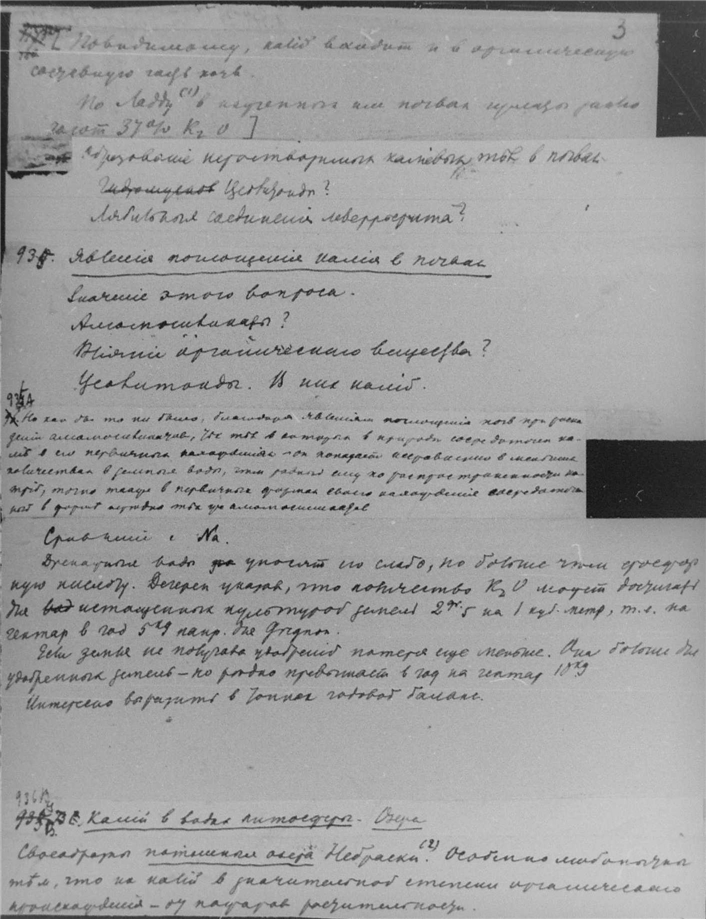 3
[Повидимому, калiй входит и в органическую
составную часть почв.
По Ладду (1) в изученных им почвах гуматы
37% K2O ]
Образованiе нерастворимых калiевых тѣл в почвах
Цеолитоиды?
соединенiя леверрьерита?
935. Явленiя поглощенiя калiя в почвах
Значенiе этого вопроса.
Алюмосиликаты?
Влiянiе органическаго вещества?
Цеолитоиды. В них калiй.
935A
Но как бы то ни было, благодаря явлениям поглощенiя почв при
алюмосиликатов, тѣх тѣл в которых в природѣ сосредоточен ка-
лiй в его первичных нахожденiях - он попадает несравненно в меньших
количествах в земные воды, чѣм равный ему по распространенности на-
трiй, точно также в первичных формах своего нахожденiя сосредоточен-
ный в формѣ тѣх же алюмосиликатов
Сравненiе с Na.
Дренажныя воды уносят его слабо, но больше чѣм фосфор-
ную кислоту. Дегерен указал, что количество K2O может достигать
для истощенных культурой земель 2gr.5 на 1 куб. метр, т.е. на
гектар в год 5kg напр. для Grignon.
Если земля не получала удобренiй потеря еще меньше. Она больше для
удобренных земель - но рѣдко превышает в год на гектар 10kg
Интересно выразить в тоннах годовой баланс.
936B
Калiй в водах литосферы. Озера
Своеобразны калiевыя озера Небраски (2). Особенно любопытны
тѣм, что их калiй в значительной степени органическаго
происхожденiя - от пожаров растительности.